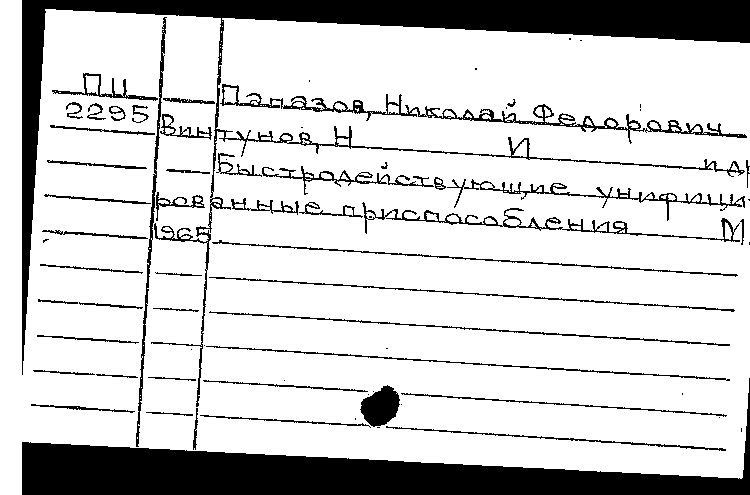 ПИ
2295
Паназов, Николай Федорович
Винтунов, Н И и др
Быстродействующие унифици-
рованные приспособления М.
1965